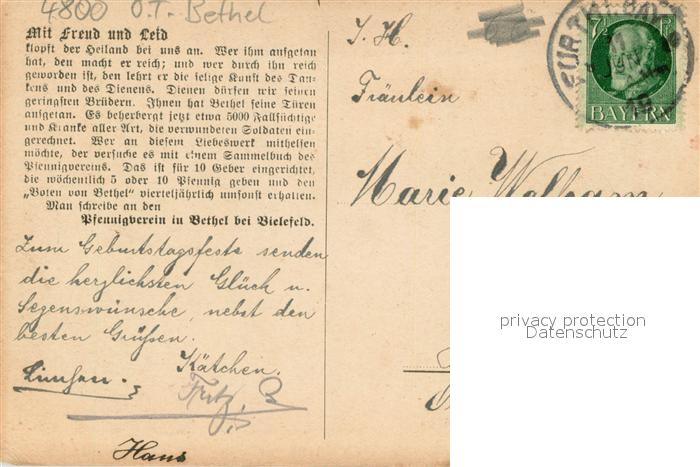 4800 O.T. Bethel
Mit Freud und Leid
klopft der Heiland bei uns an. Wer ihm aufgetan
hat, den macht er reich; und wer durch ihn reich
geworden ist, den lehrt er die selige Kunst des Dan-
kens und des Dienens. Dienen dürfen wir seinen
geringsten Brüdern. Ihnen hat Bethel seine Türen
aufgetan. Es beherbergt jetzt etwa 5000 Fallsüchtige
und Kranke aller Art, die verwundeten Soldaten ein-
gerechnet. Wer an diesem Liebeswerk mithelfen
möchte, der versuche es mit einem Sammelbuch des
Pfennigvereins. Das ist für 10 Geber eingerichtet,
die wöchentlich 5 oder 10 Pfennig geben und den
„Boten von Bethel“ vierteljährlich umsonst erhalten.
Man schreibe an den
Pfennigverein in Bethel bei Bielefeld.
Zum Geburtstagsfeste senden
die herzlichsten Glück u.
Segenswünsche, nebst den
besten Grüßen.
Kätchen.
Fritz.
Hans
I. H.
Fräulein
Marie
7½
BAYERN
JUN
privacy protection
Datenschutz